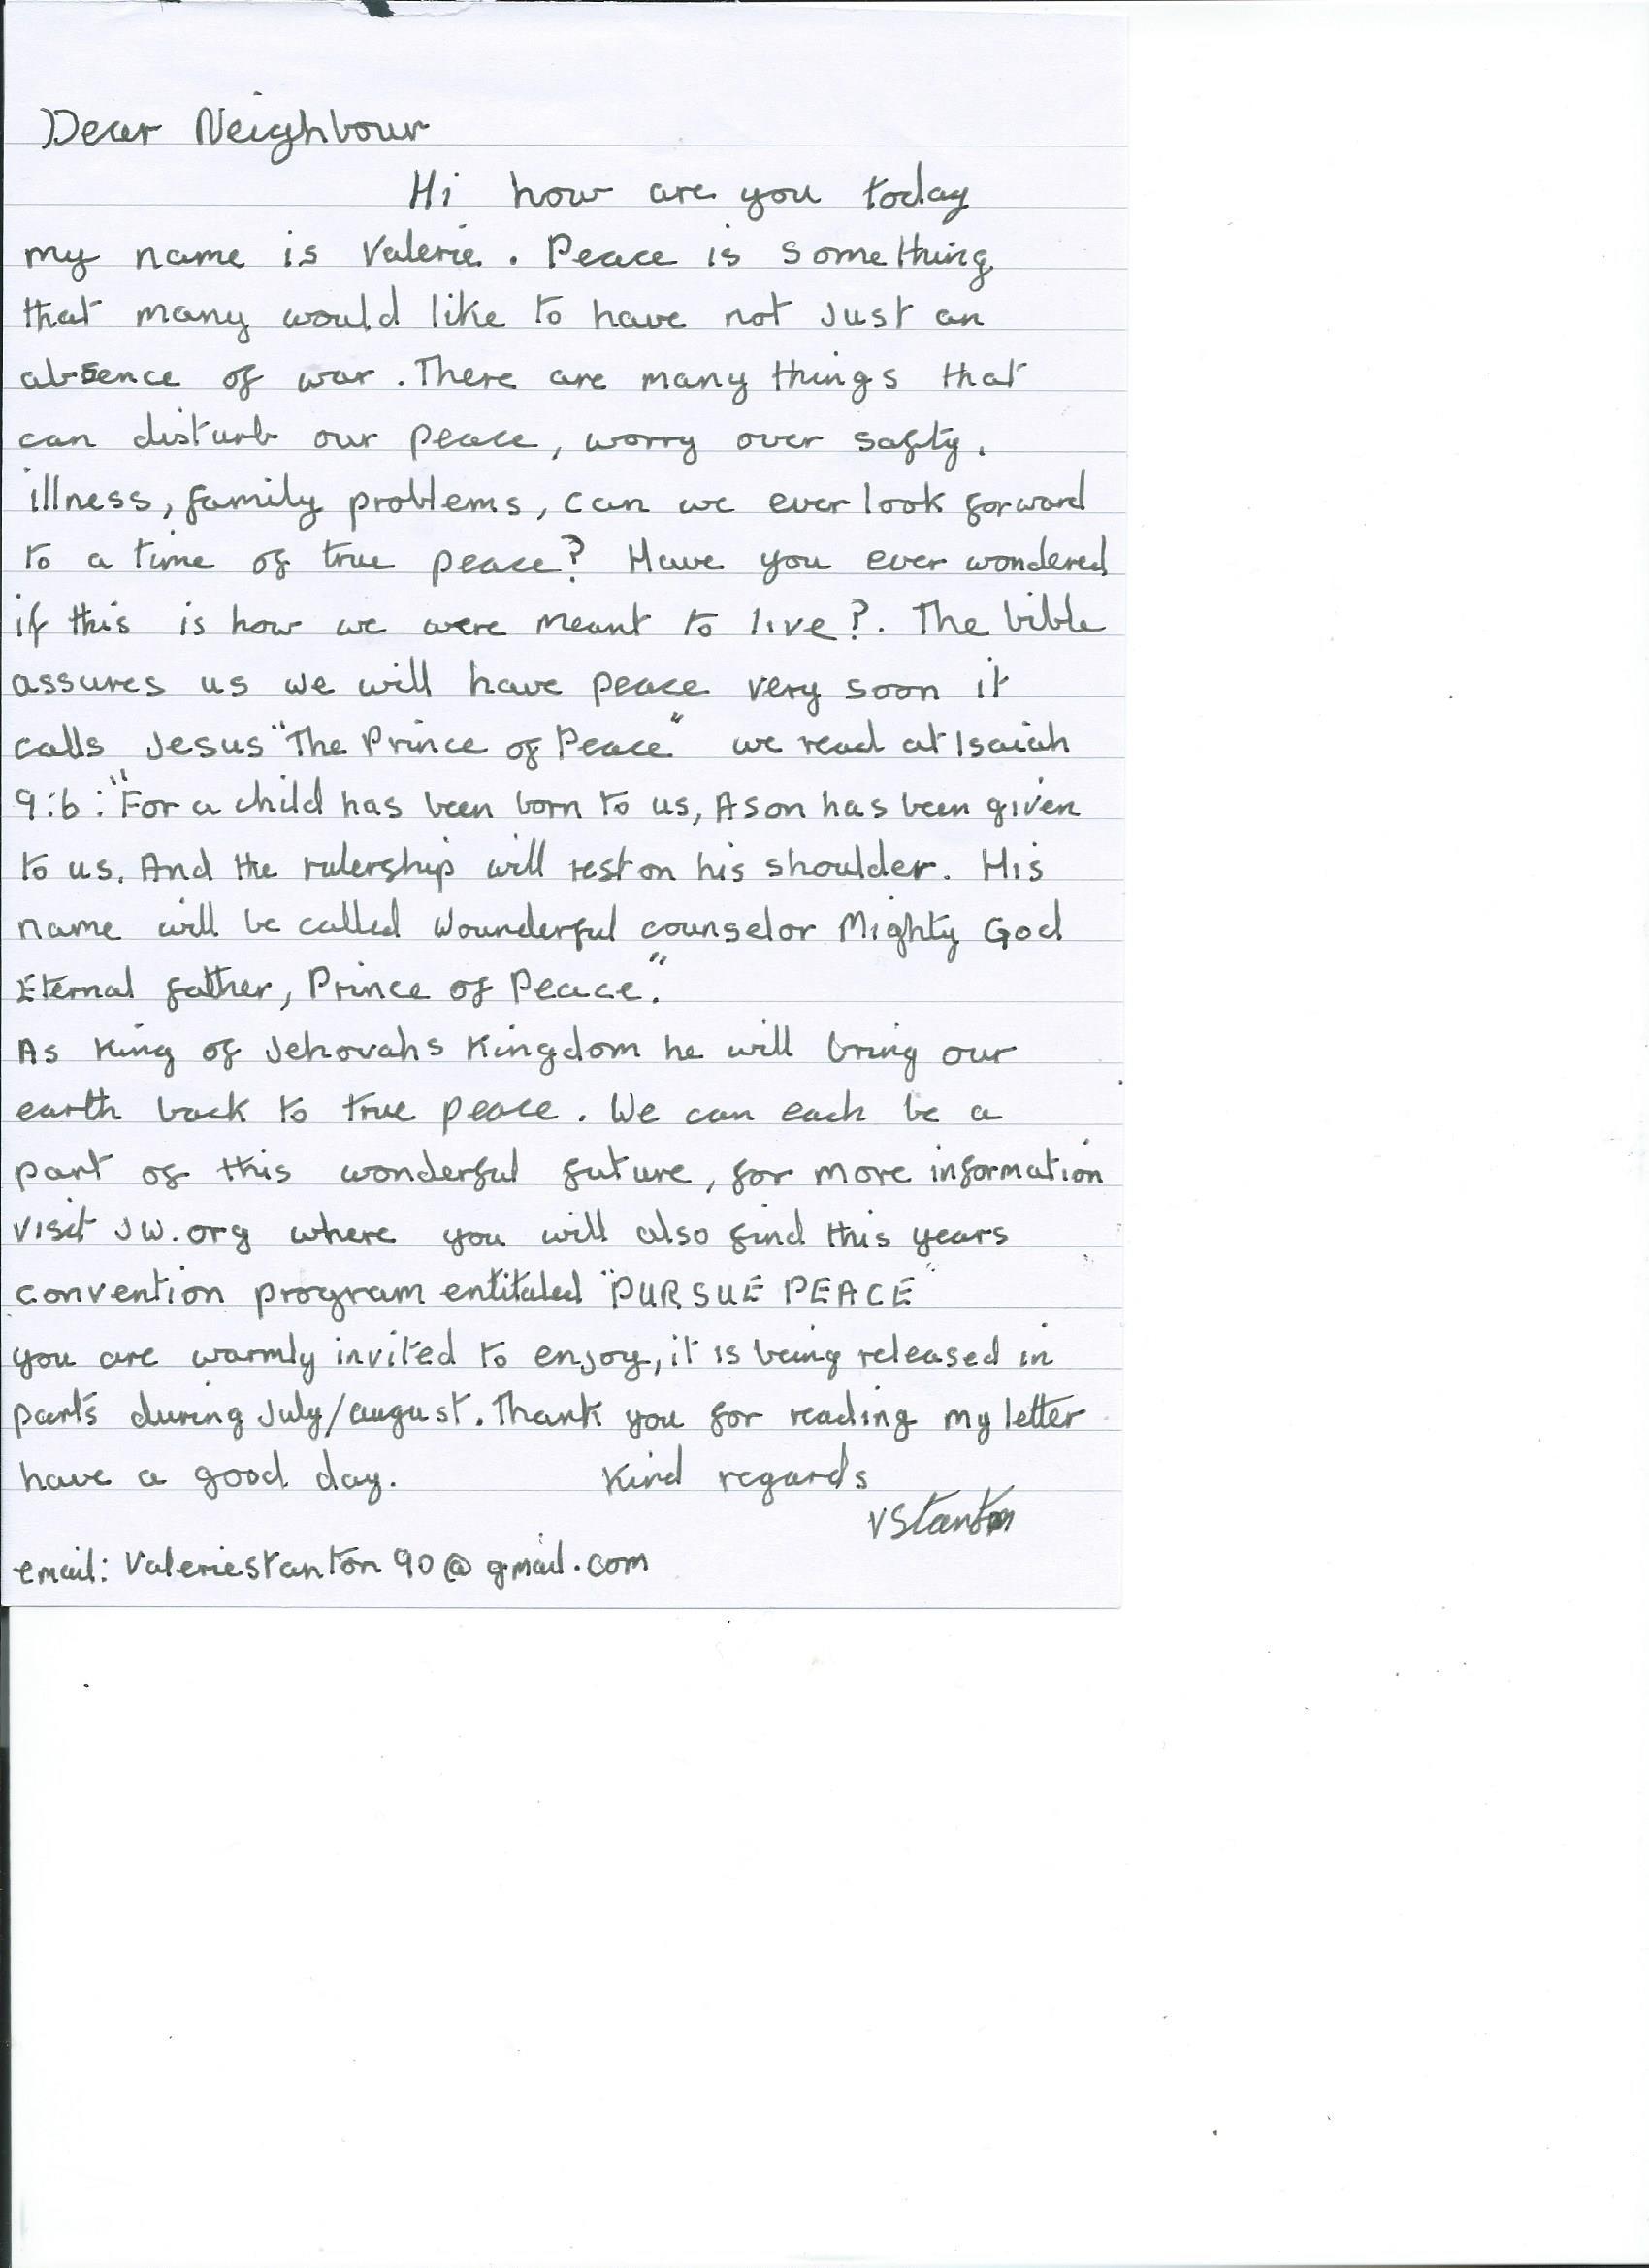 Dear Neighbour
Hi how are you today
my name is Valerie. Peace is something
that many would like to have not just an
absence of war. There are many things that
can disturb our peace, worry over safty.
illness, family problems, can we ever look forward
to a time of true peace? Have you ever wondered
if this is how we were meant to live?. The bible
assures us we will have peace very soon it
calls Jesus "The Prince of Peace" we read at Isaiah
9:6: "For a child has been born to us, A son has been given
to us. And the rulership will rest on his shoulder. His
name will be called Wounderful counselor Mighty God
Eternal father, Prince of Peace."
As King of Jehovahs Kingdom he will bring our
earth back to true peace. We can each be a
part of this wonderful future, for more information
visit JW.org where you will also find this years
convention program entitaled "PURSUE PEACE"
you are warmly invited to enjoy, it is being released in
parts during July/august. Thank you for reading my letter
have a good day. Kind regards
VStanton
email: Valeriestanton90@gmail.com